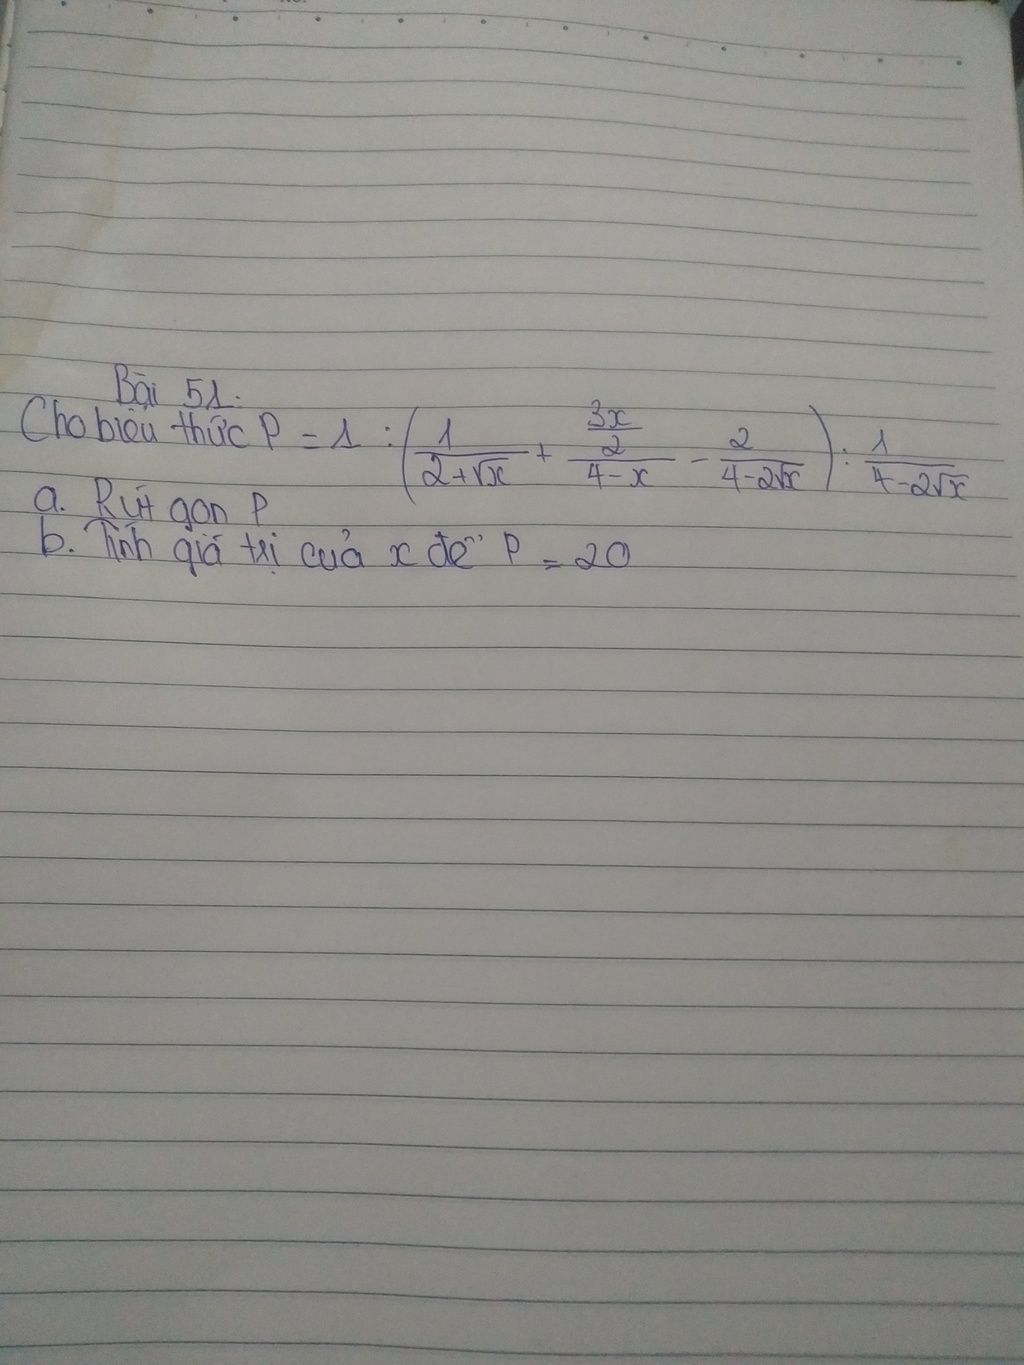 Bài 51.
Cho biểu thức P = 1 : ( 1/(2+√x) + (3x/2)/(4-x) - 2/(4-2√x) ) : 1/(4-2√x)
a. Rút gọn P
b. Tính giá trị của x để P = 20